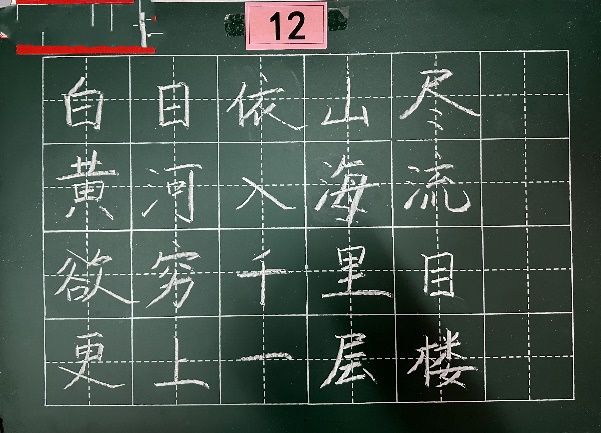 12
自目依山尽
黄河入海流
欲穷千里目
更上一层楼